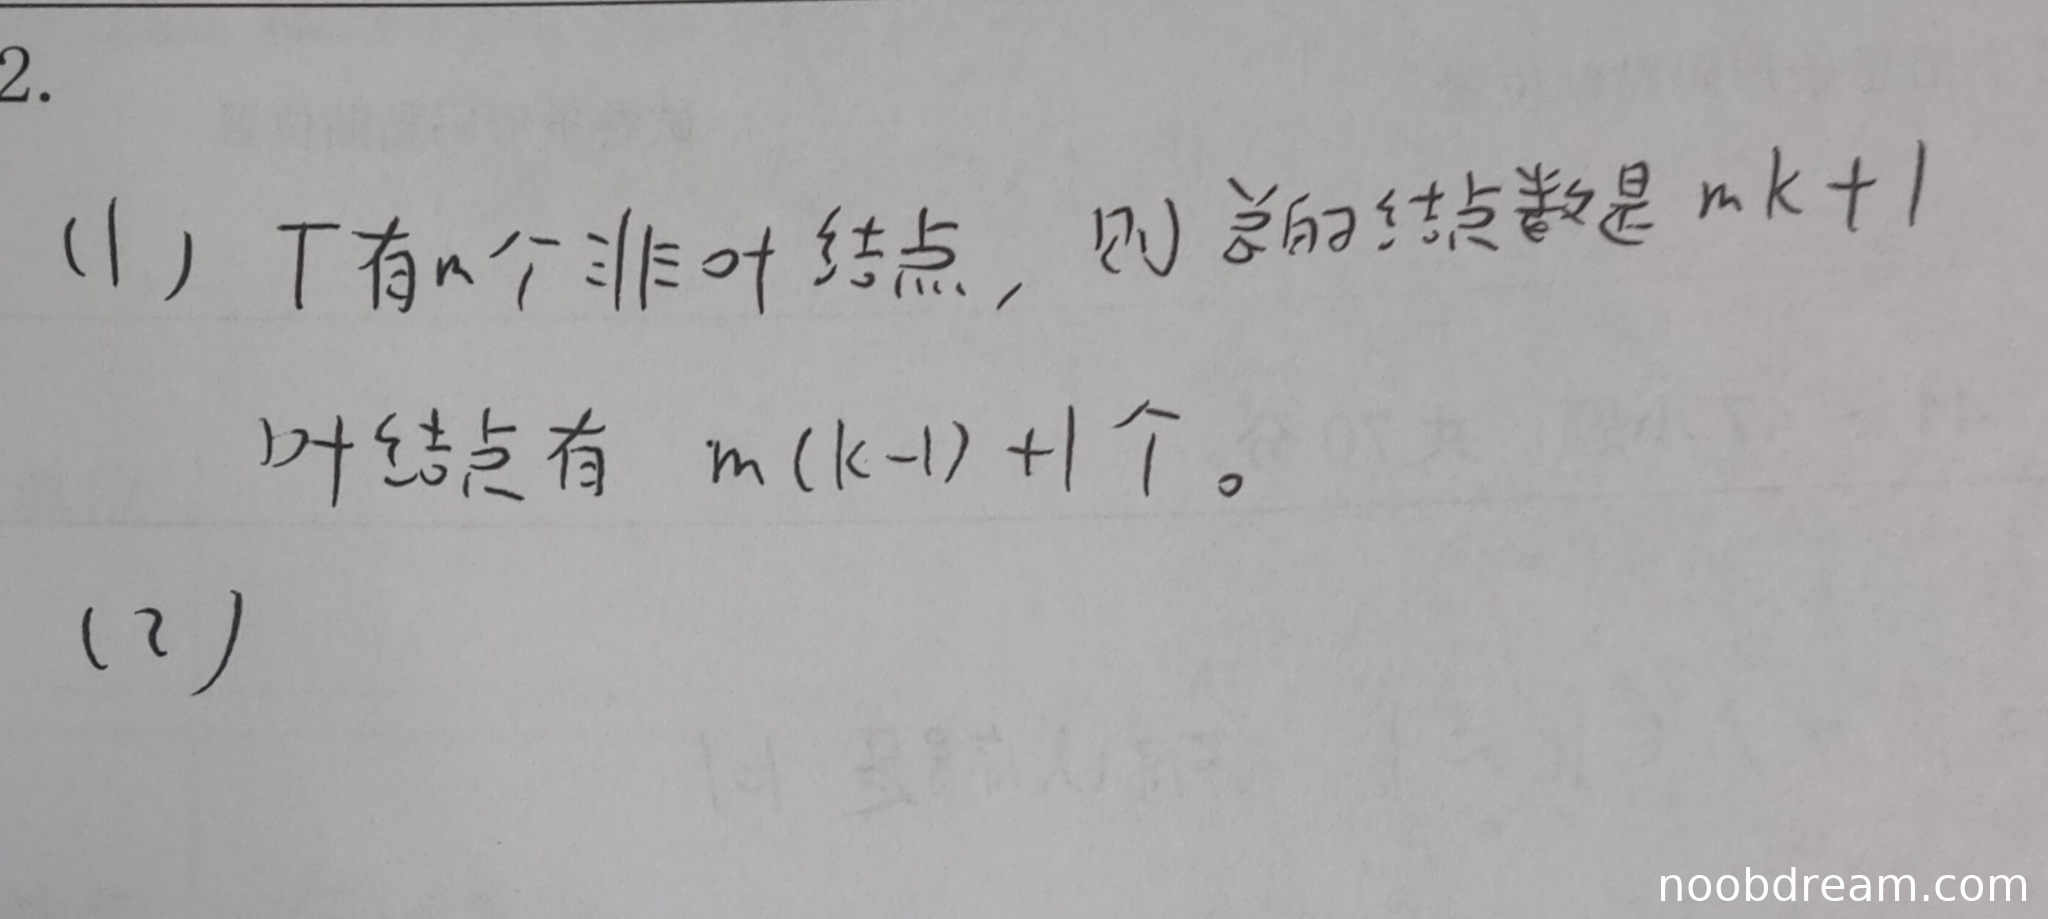 2.
(1) T有m个非叶结点,则总的结点数是 mk+1
叶结点有 m(k-1)+1个。
(2)
noobdream.com